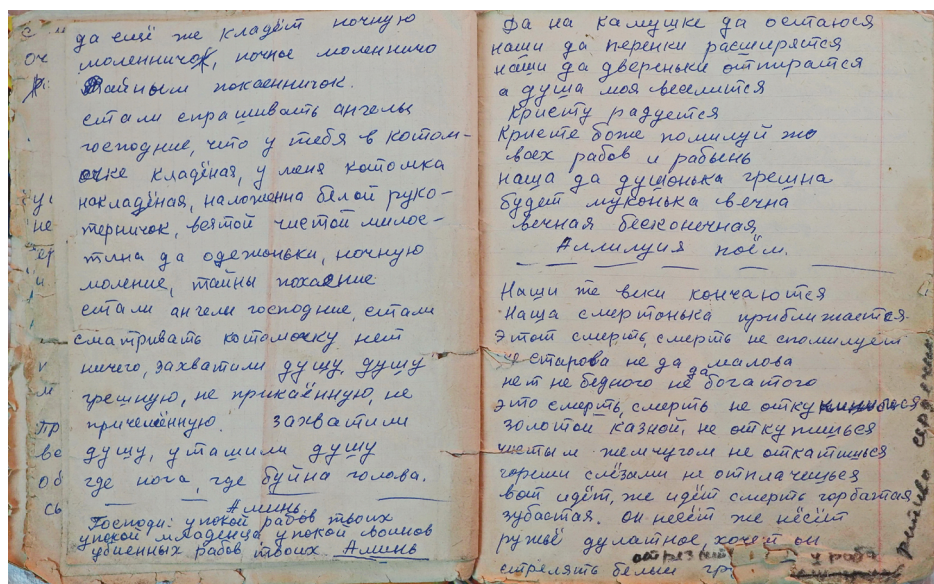 да ещё же кладёт ночную
моленничок, ночное моленничо
тайным покаенничок.
стали спрашивать ангелы
господние, что у тебя в котом-
очке кладёная, у меня котомка
накладёная, наложенна белой руко-
терничок, святой чистой милос-
тина да одежоньки, ночную
моление, тайны покаение
стали ангели господние, стали
сматривать котомочку нет
ничего, захватили душу, душу
грешную, не прикаённую, не
причелённую. захватили
душу, уташили душу
где нога, где буйна голова.
Аминь
Господи: упокой рабов твоих
упокой младенца, упокой своинов
убиенных рабов твоих Аминь
Да на камушке да остаюся
наши да перенки расширятся
наши да двереньки отпиратся
а душа моя веселится
Кристу радуется
Кристе боже помилуй же
всех рабов и рабынь
наша да душонька грешна
будет муконька вечна
вечная бесконечная
Аллилуия поём.
Наши же веки кончаются
Наша смертонька приближается
этот смерть, смерть не спомилуем
не старова не да малова
нет не бедного не да богатого
это смерть, смерть не отку
золотой казной, не откупишься
чистым жемчугом не откатишься
горюши слёзами не отплачешься
вот идёт, же идёт смерть горбатая
зубастая. он несёт же несёт
ружьё дулатное, хочет он
стрелять белый
отрезнит
у раба
ретиво сердечик